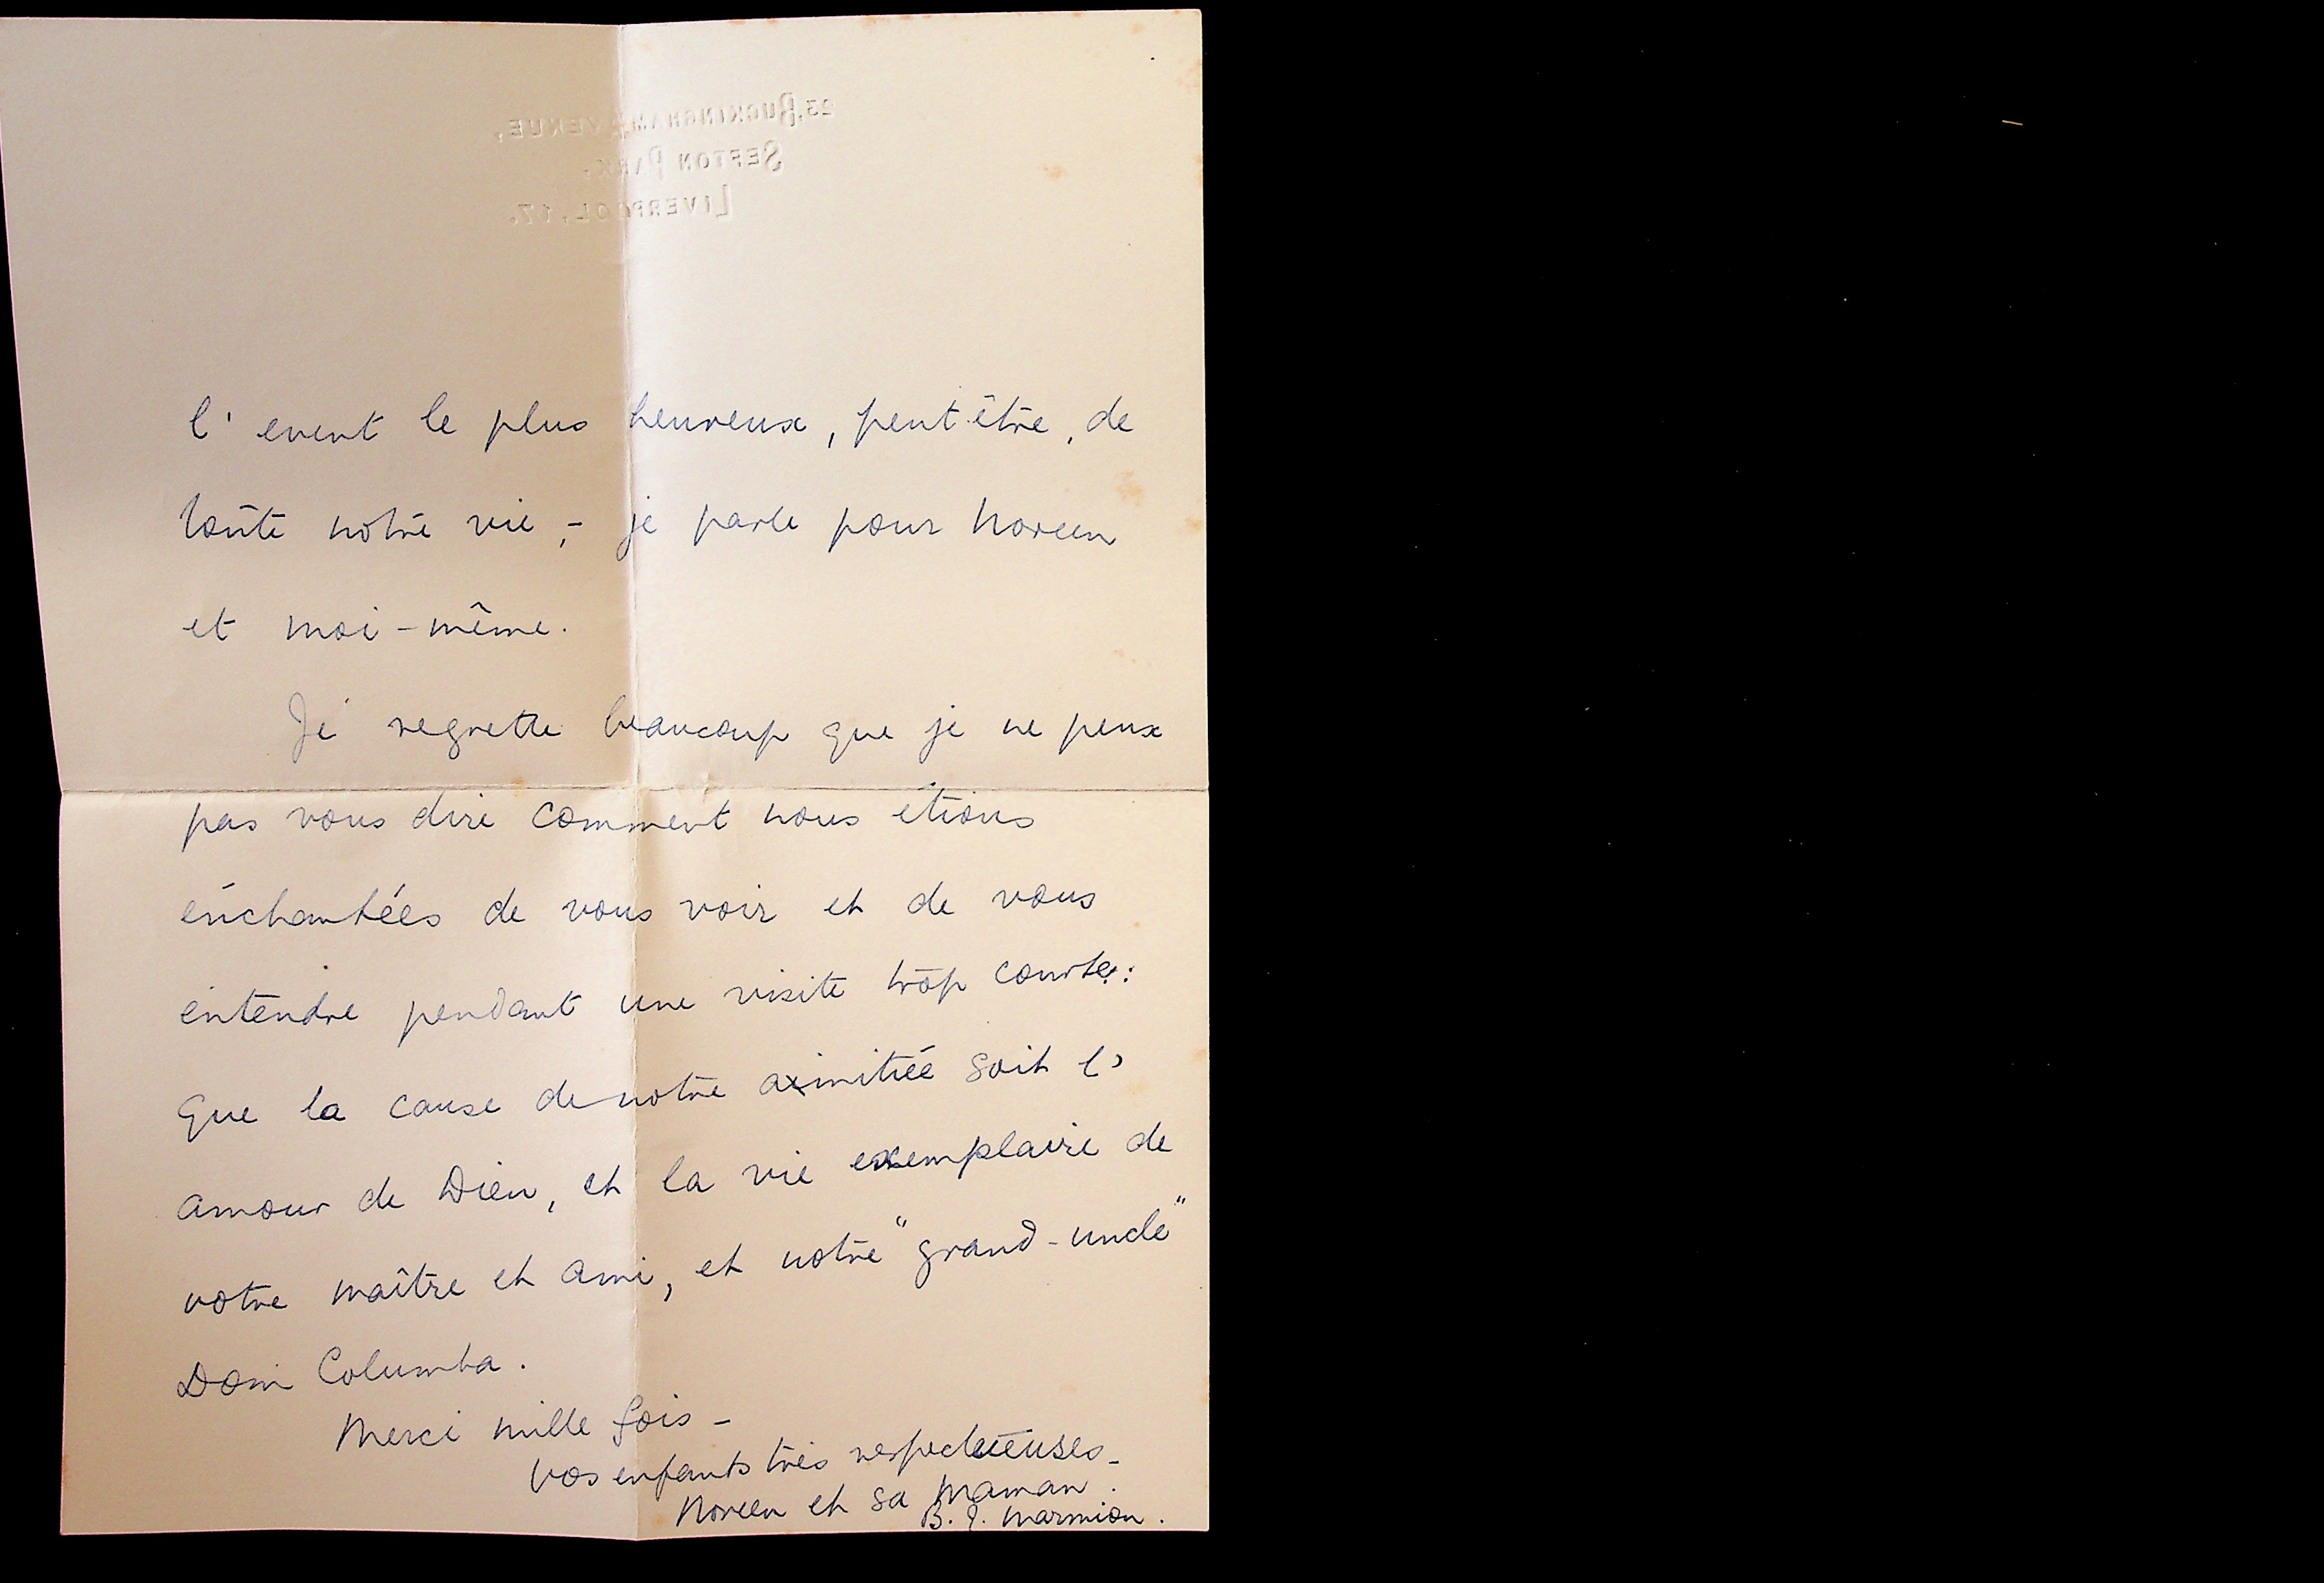 23, BUCKINGHAM AVENUE,
SEFTON PARK,
LIVERPOOL, 17.
l' event le plus heureux, peut-être, de
toute notre vie,- je parle pour Noreen
et moi-même.
Je regrette beaucoup que je ne peux
pas vous dire comment nous étions
enchantées de vous voir et de vous
entendre pendant une visite trop courte:
que la cause de notre aximitiée soit l'
amour de Dieu, et la vie exemplaire de
votre maître et ami, et notre "grand-uncle"
Dom Columba.
Merci mille fois -
Vos enfants très respectueuses -
Noreen et sa Maman.
B. J. Marmion.